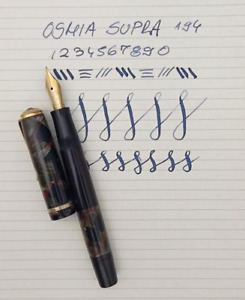 OSMIA SUPRA 194
1234567890